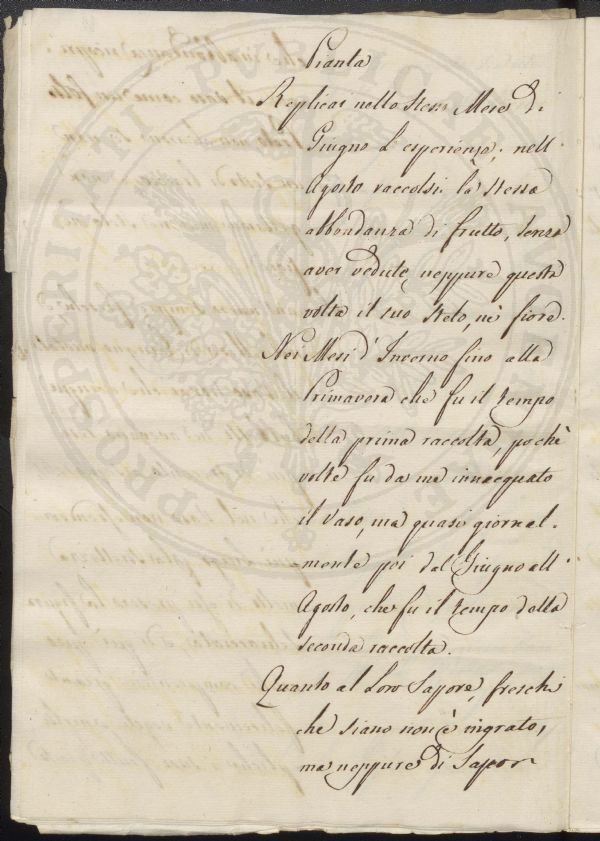 Pianta
Replicai nello stesso Mese di
Giugno l'esperienza; nell'
Agosto raccolsi la stessa
abbondanza di frutto, senza
aver vedute neppure questa
volta il suo stelo, nè fiore.
Nei Mesi d'Inverno fino alla
Primavera che fu il tempo
della prima raccolta, pochè
volte fu da me innacquato
il vaso, ma quasi giornal-
mente poi dal Giugno all'
Agosto, che fu il tempo della
seconda raccolta.
Quanto al Loro Sapore, freschi
che siano non è ingrato,
ma neppure di Sapor